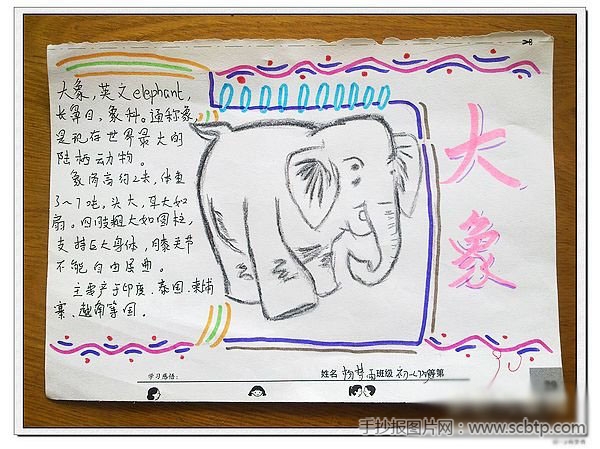 大象,英文elephant,
长鼻目,象科。通称象,
是现存世界最大的
陆栖动物。
象肩高约2米,体重
3~7吨,头大,耳大如
扇。四肢粗大如圆柱,
支持巨大身体,膝关节
不能自由屈曲。
主要产于印度、泰国、柬埔
寨、越南等国。
大象
学习感悟:
姓名 班级 等第
手抄报图片网:www.scbtp.com